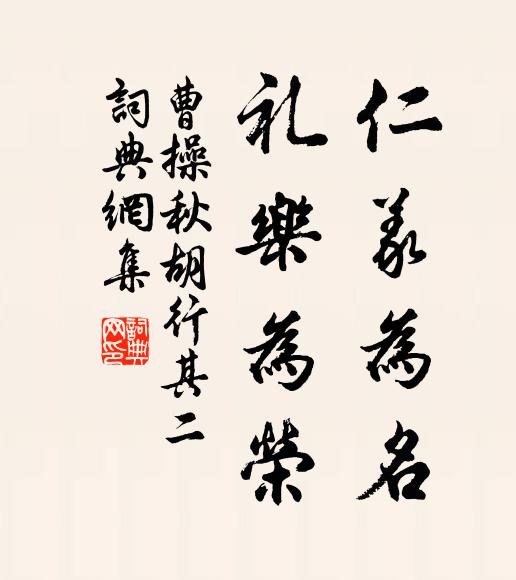 仁義為名
礼樂為榮
曹操秋胡行其二
詞典網集
詞典网印